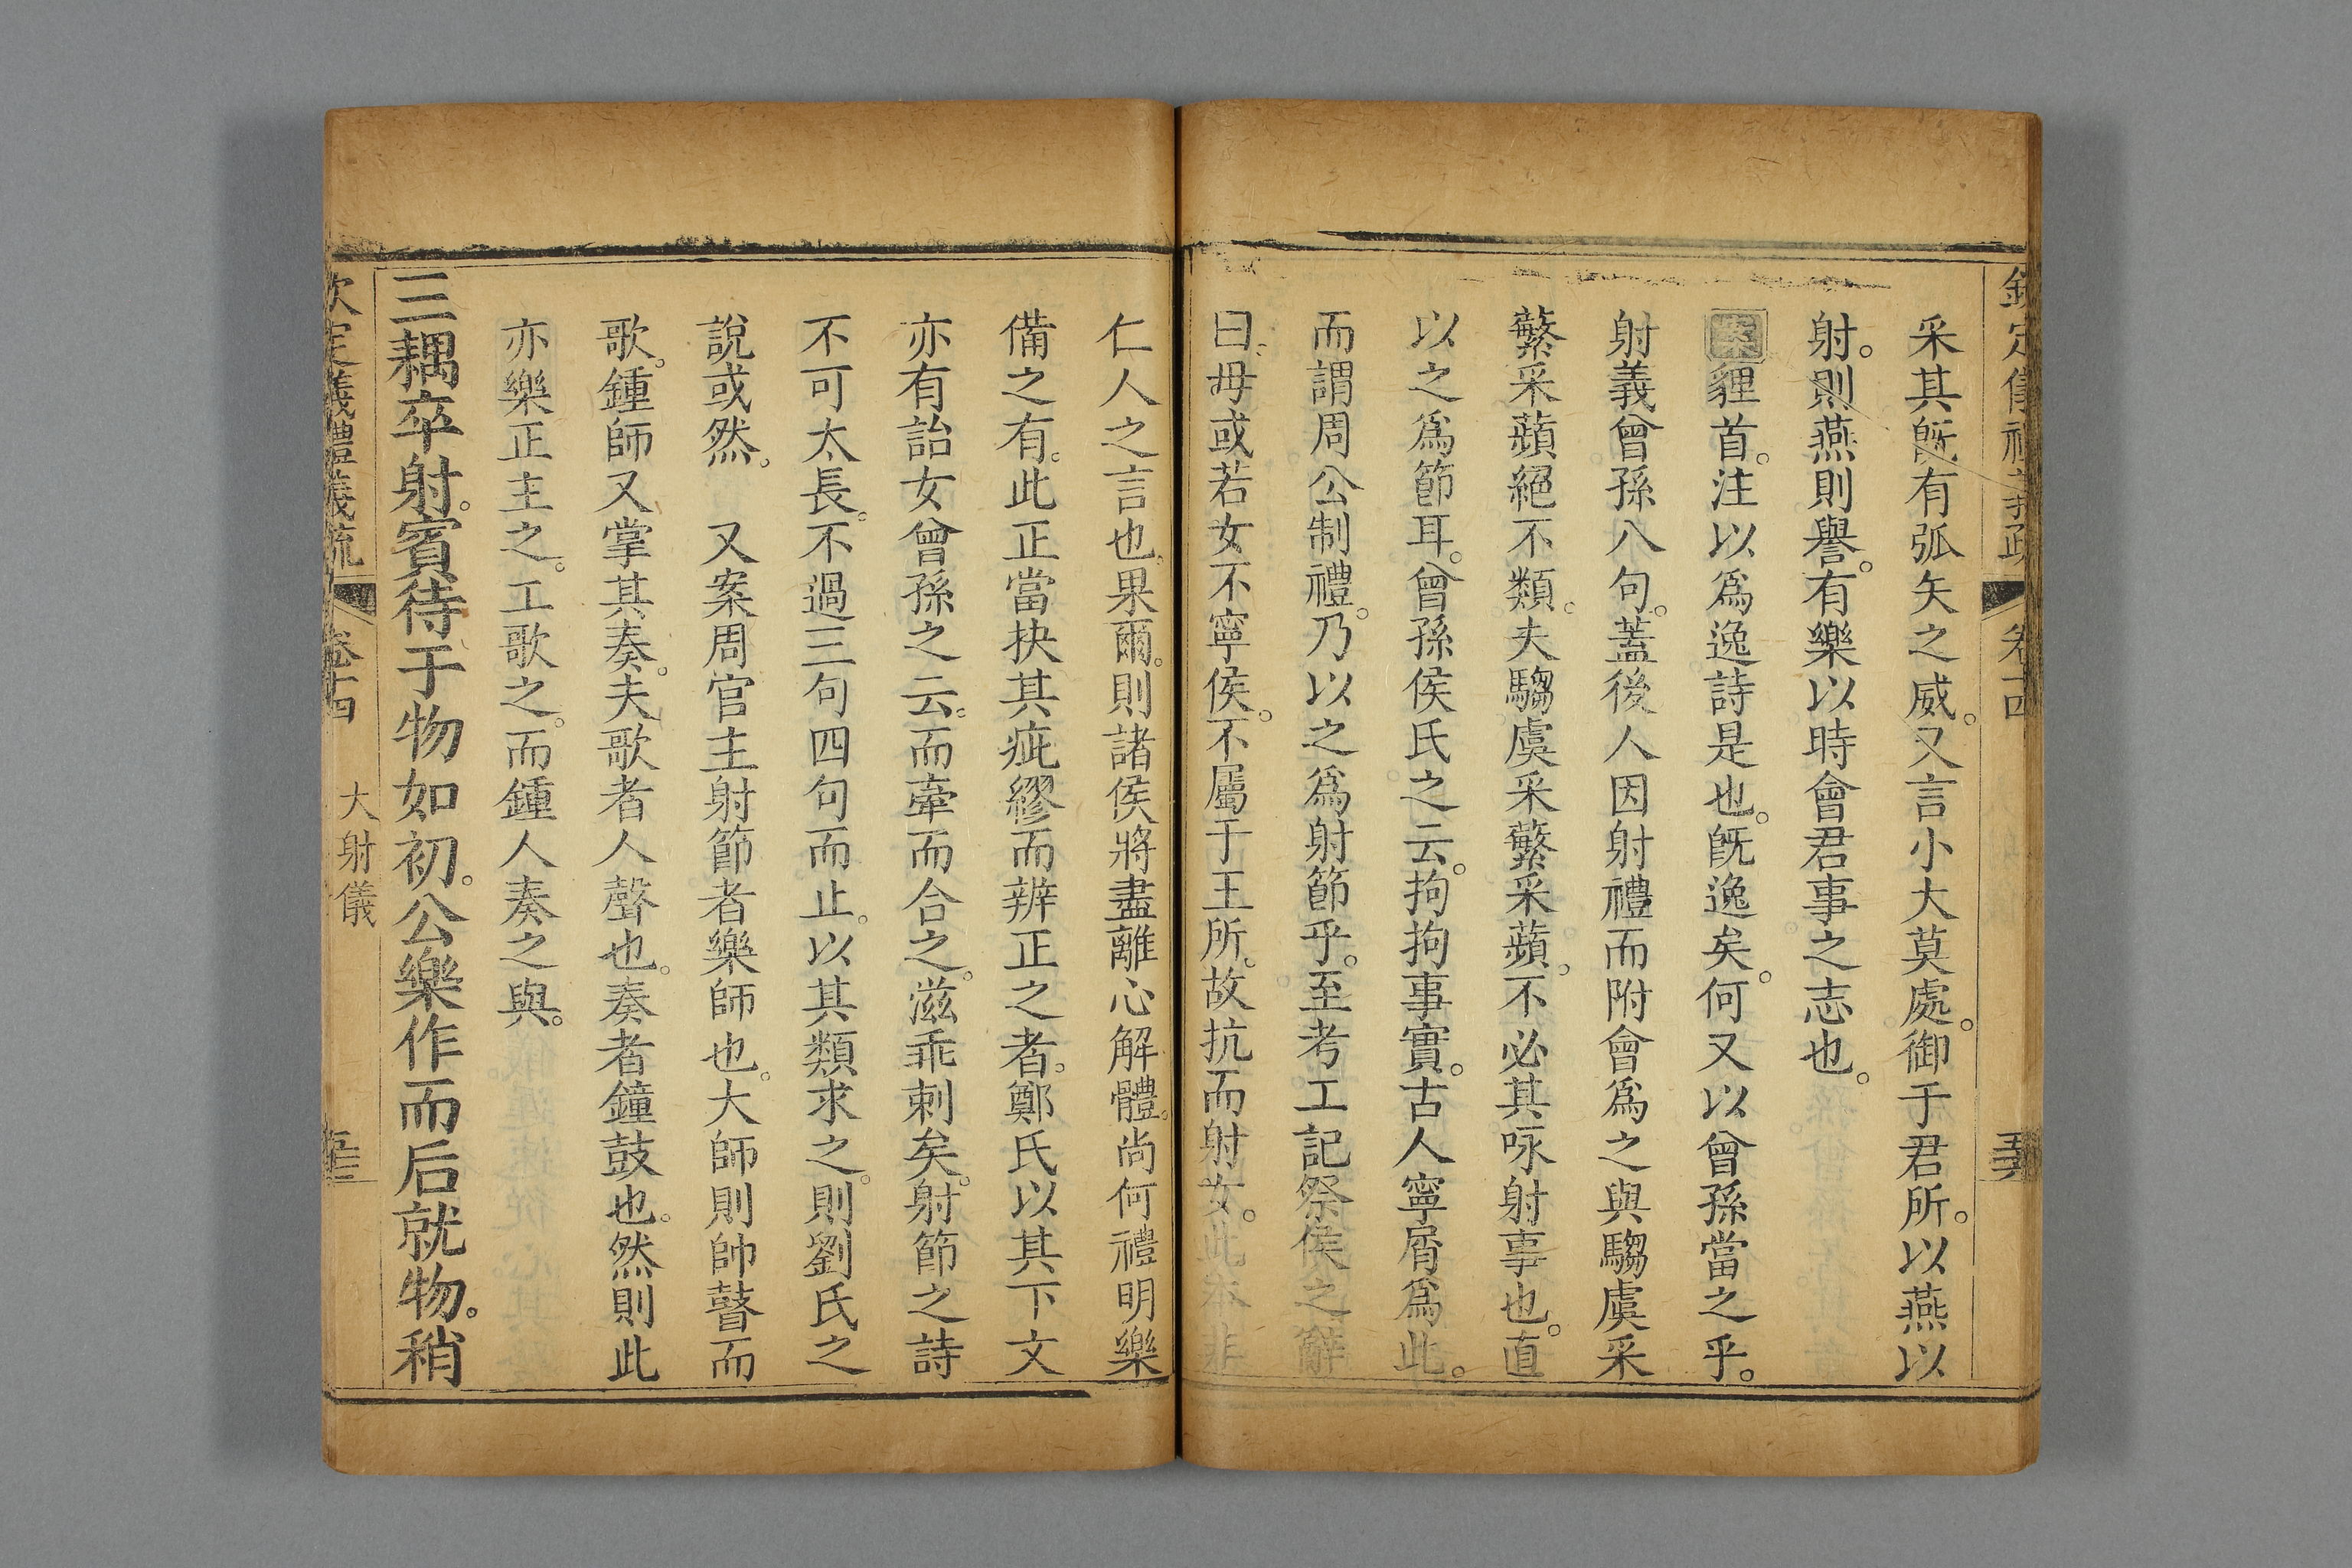 采其旣有弧矢之威。又言小大莫處。御于君所。以燕以
射。則燕則譽。有樂以時會君事之志也。
案貍首。注以爲逸詩是也。旣逸矣。何又以曾孫當之乎。
射義曾孫八句。蓋後人因射禮而附會爲之與騶虞采
蘩采蘋絕不類。夫騶虞采蘩采蘋。不必其咏射事也。直
以之爲節耳。曾孫侯氏之云。拘拘事實。古人寧屑爲此。
而謂周公制禮。乃以之爲射節乎。至考工記祭侯之辭
曰。毋或若女不寧侯。不屬于王所。故抗而射女。此本非
仁人之言也。果爾。則諸侯將盡離心解體。尚何禮明樂
備之有。此正當抉其疵繆而辨正之者。鄭氏以其下文
亦有詒女曾孫之云。而牽而合之。滋乖剌矣。射節之詩
不可太長。不過三句四句而止。以其類求之。則劉氏之
說或然。 又案周官主射節者樂師也。大師則帥瞽而
歌。鍾師又掌其奏。夫歌者人聲也。奏者鐘鼓也。然則此
亦樂正主之。工歌之。而鍾人奏之與。
三耦卒射。賓待于物如初。公樂作而后就物。稍
欽定儀禮義疏 卷十四 大射儀